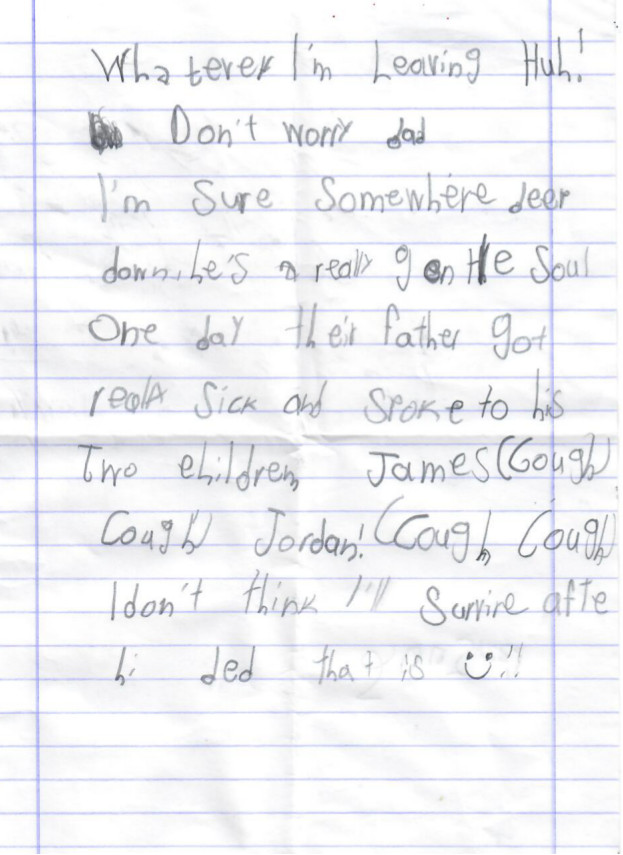 Whatever I'm Leaving Huh!
Don't worry dad
I'm Sure Somewhere deep
down, he's a really gentle Soul
One day their father got
really Sick and Spoke to his
Two children James (Cough
Cough) Jordan! (Cough Cough)
I don't think I'll Survive afte
hi ded that is ☺!!